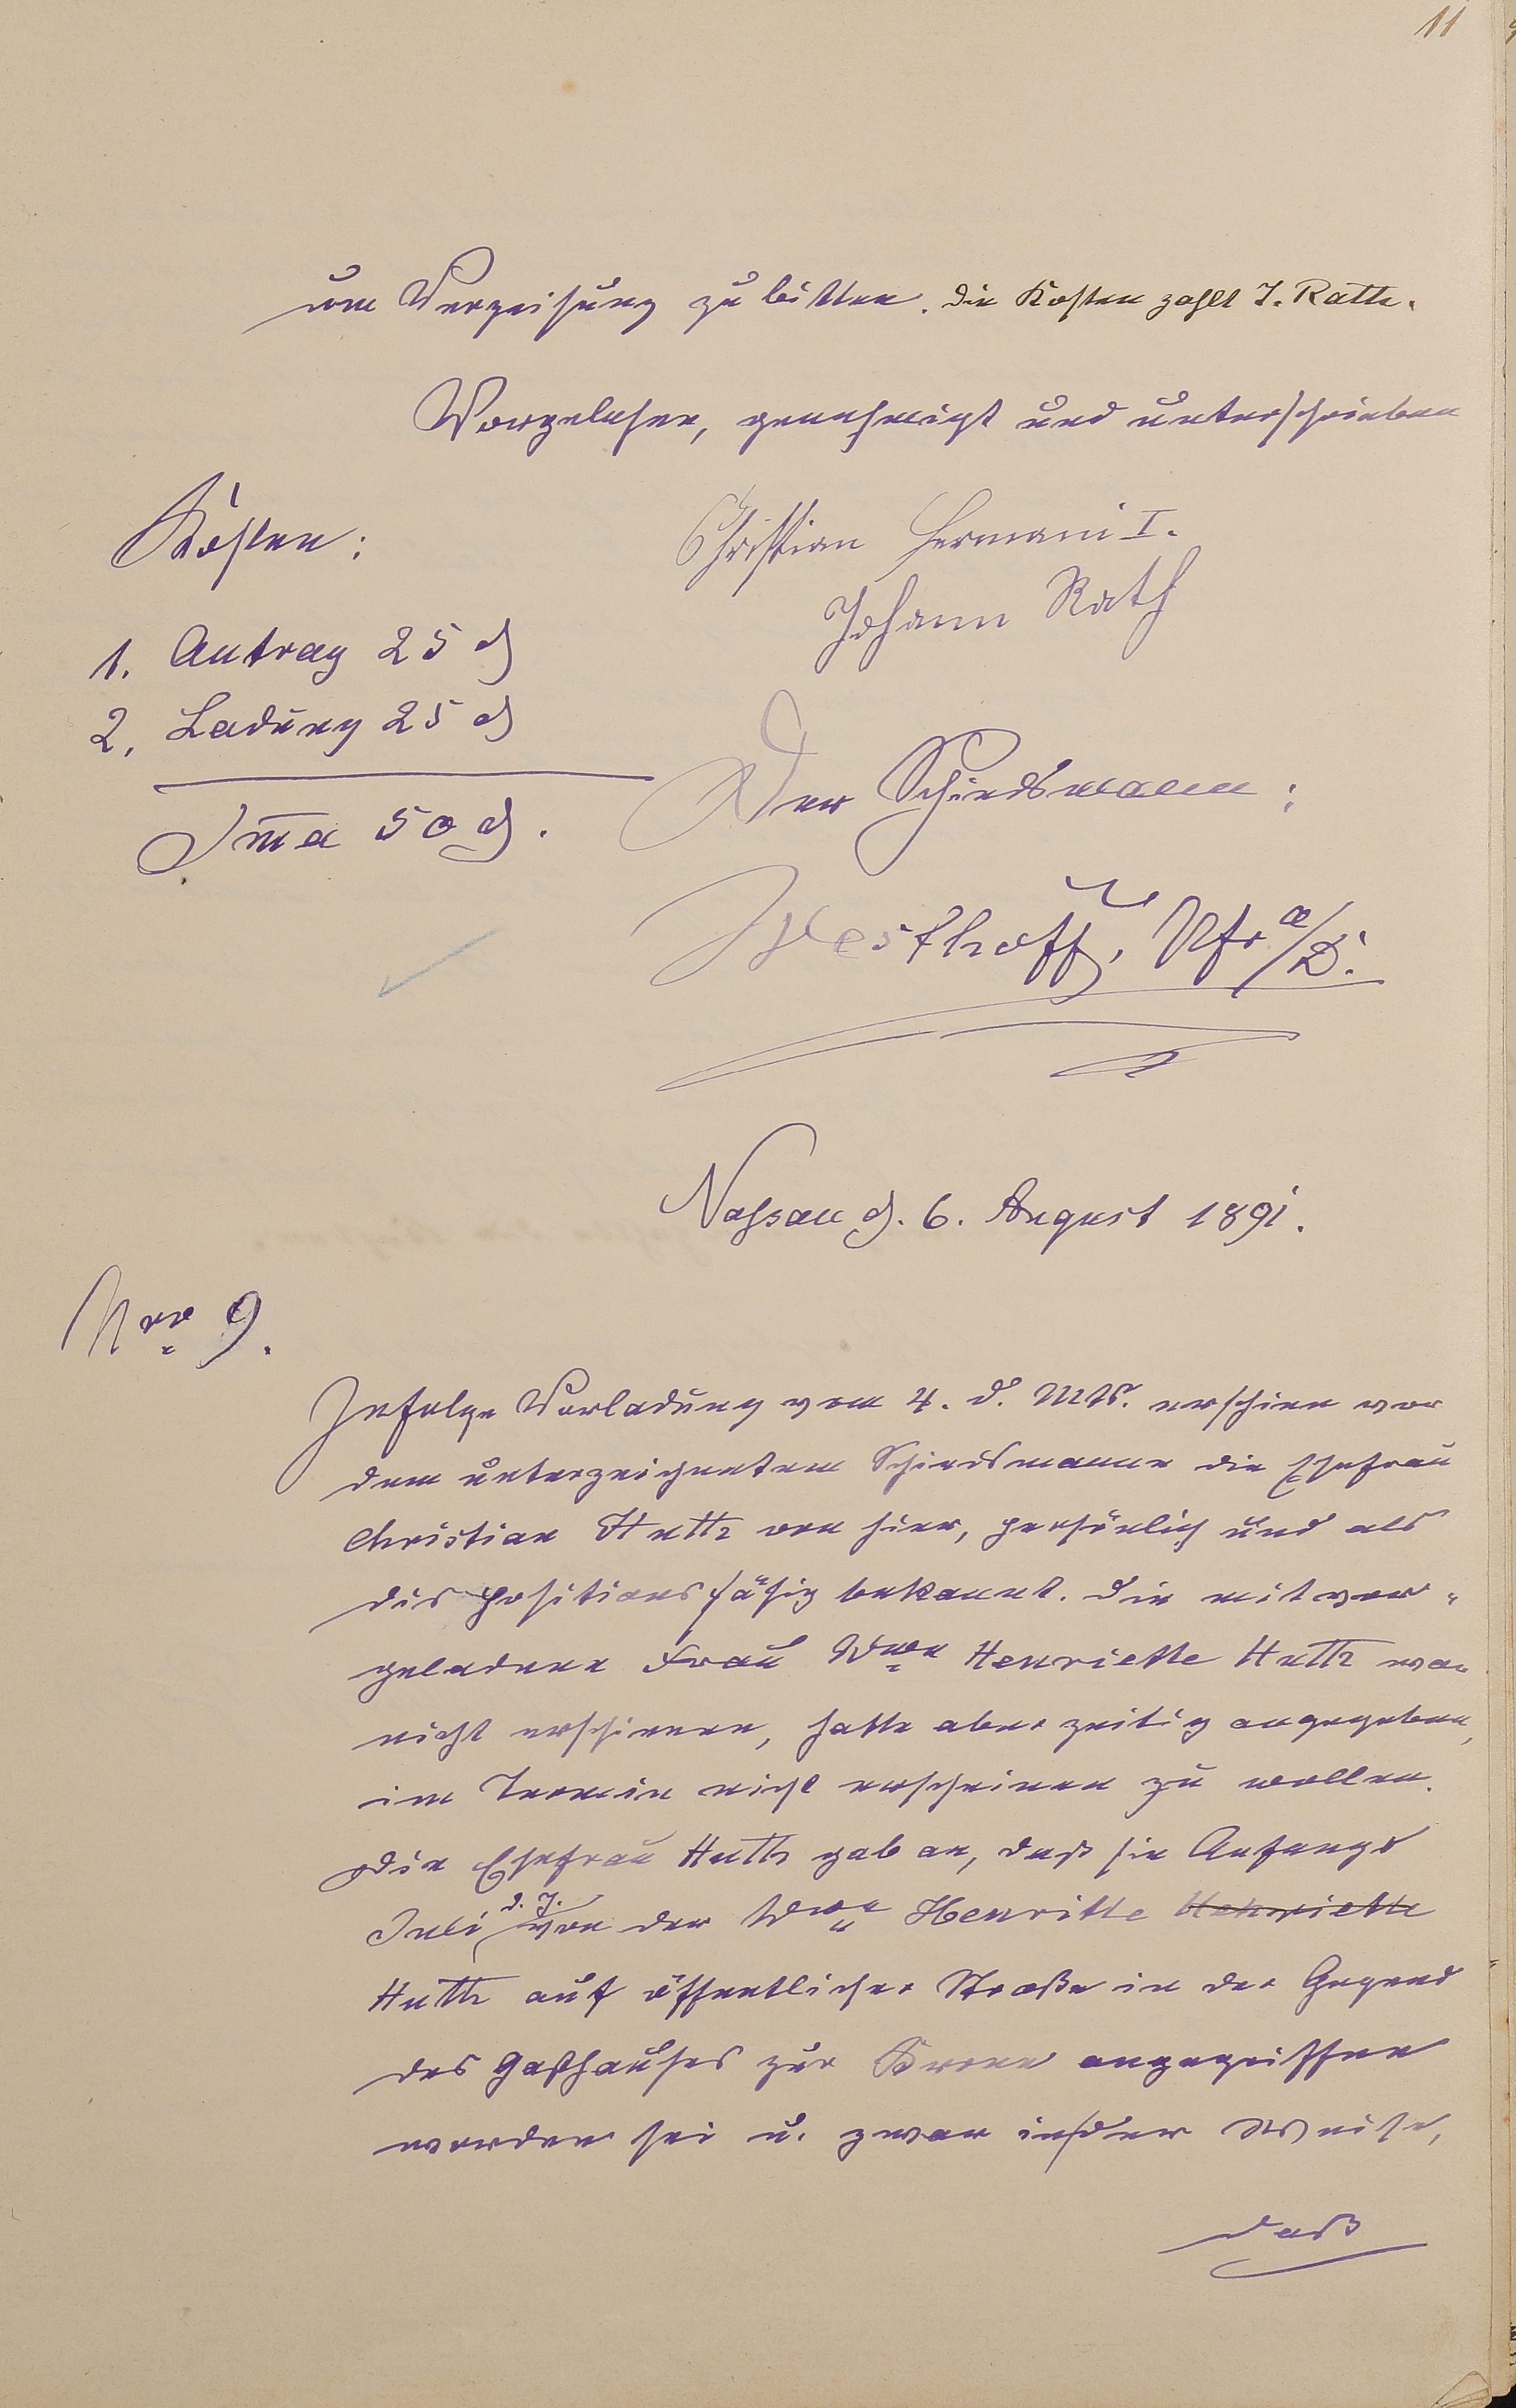 11
um Verzeihung zu bitten. Die Kosten zahlt J. Rath.
Vorgelesen, genehmigt und unterschrieben
Kosten:
Christian Hermani I.
Johann Rath
1. Antrag 25 d
2. Ladung 25 d
Sma 50 d.
Der Schiedsmann:
Westhoff, a/D.
Nassau d. 6. August 1891.
Nro 9.
Infolge Vorladung vom 4. d. Mts. erschien vor
dem unterzeichneten Schiedsmanne die Ehefrau
Christian Huth von hier, persönlich und als
dispositionsfähig bekannt. Die mitvor-
geladene Frau Wwe Henriette Huth war
nicht erschienen, hatte aber zeitig angegeben,
im Termin nicht erscheinen zu wollen.
Die Ehefrau Huth gab an, daß sie Anfangs
Juli d. J. von der Wwe Henritte Henriette
Huth auf öffentlicher Straße in der Gegend
des Gasthauses zur Krone angegriffen
worden sei u. zwar in der Weise,
daß